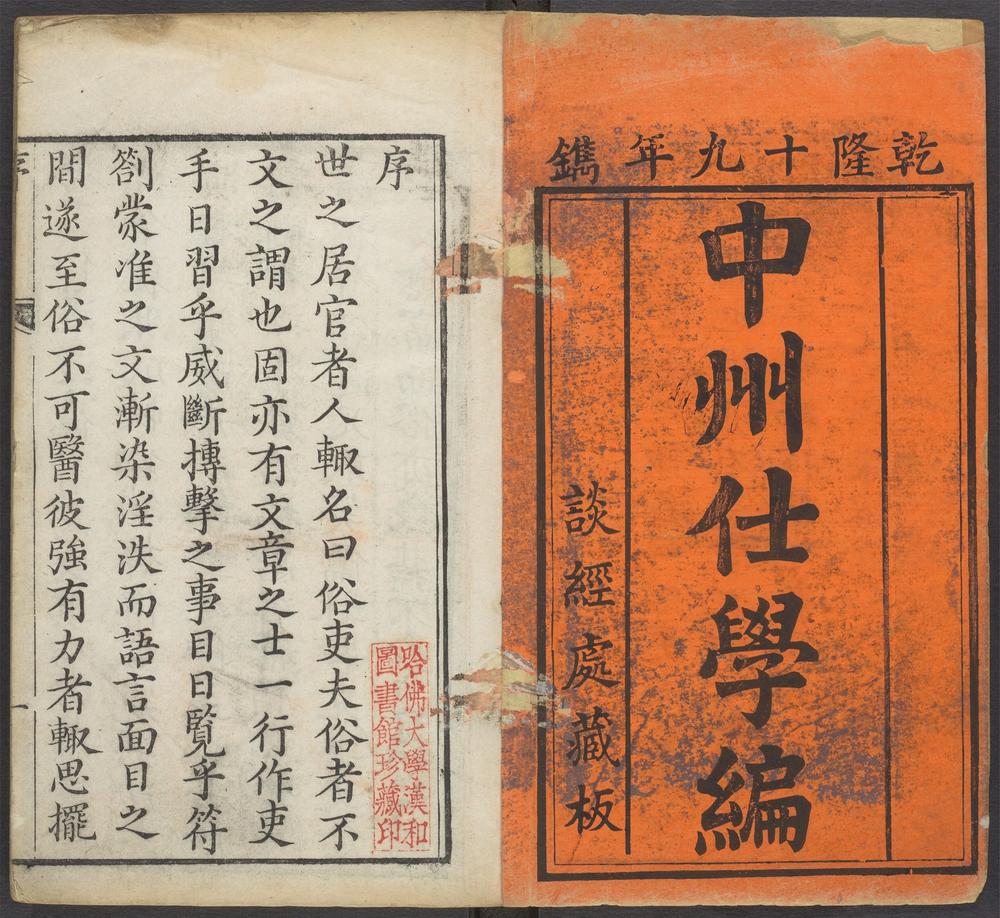 乾隆十九年鐫
中州仕學編
談經處藏板
序
世之居官者人輒名曰俗吏夫俗者不
文之謂也固亦有文章之士一行作吏
手日習乎威斷摶擊之事目日覽乎符
劄蒙准之文漸染淫泆而語言面目之
間遂至俗不可醫彼強有力者輒思擺
哈佛大學漢和
圖書館珍藏印
序
一